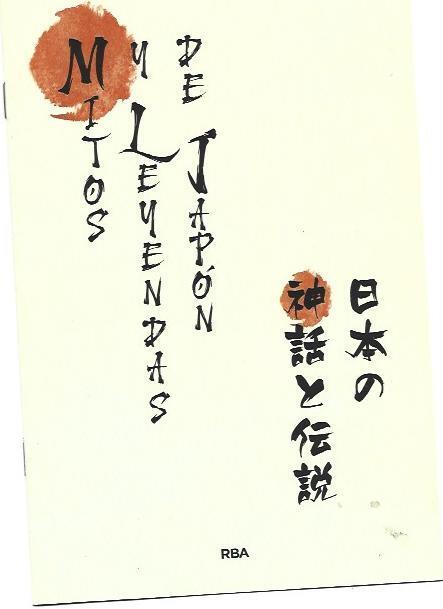 MITOS
Y LEYENDAS
DE JAPÓN
日本の
神話と伝説
RBA